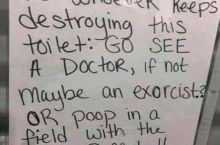 KEEPS
destroying this
toilet: GO SEE
A DOCTOR, if not
maybe an exorcist?
OR poop in a
field with the